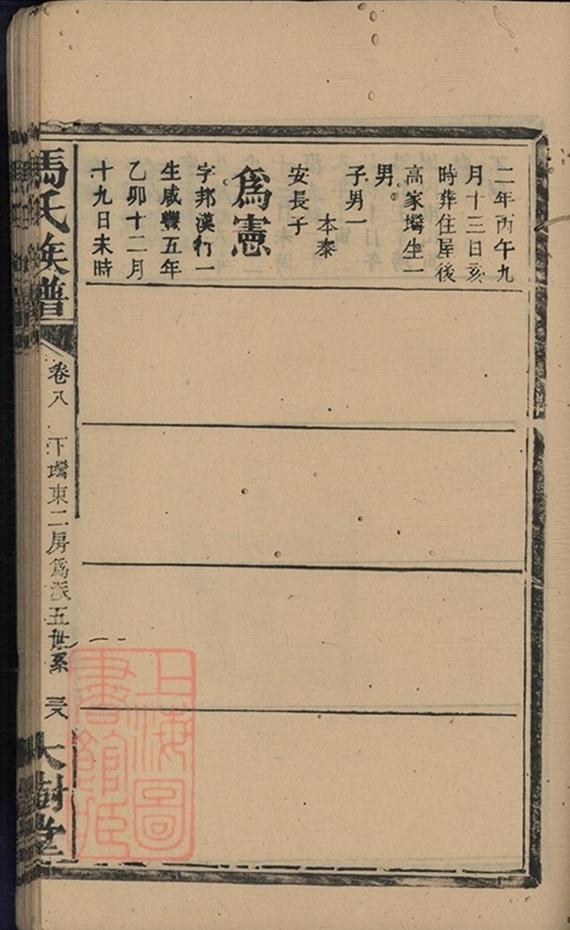 二年丙午九
月十三日亥
時葬住屋後
高家壪生一
男
子男一
本泰
安長子
為憲
字邦漢行一
生咸豐五年
乙卯十二月
十九日未時
馬氏族譜
卷八
下壪東二房為派五世系
大樹堂
上海圖
書館